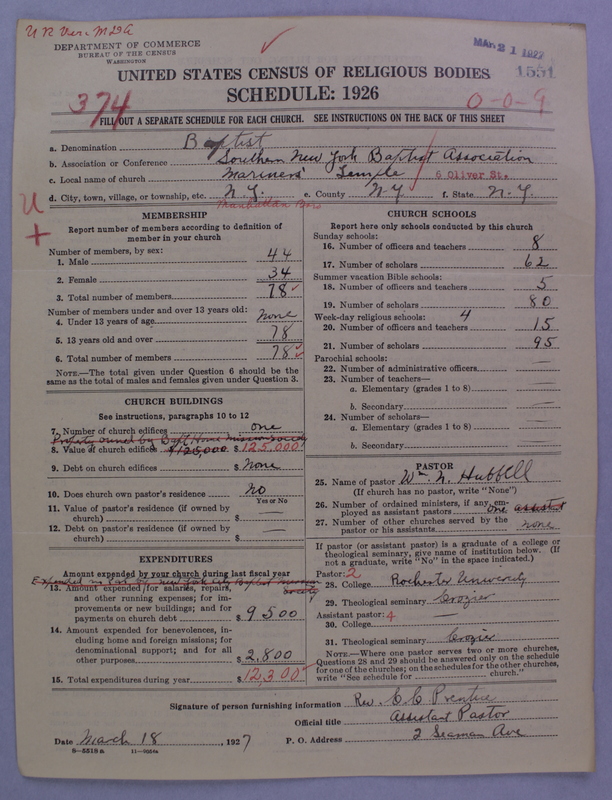 DEPARTMENT OF COMMERCE
BUREAU OF THE CENSUS
WASHINGTON
MAR 21 1927
1551
UNITED STATES CENSUS OF RELIGIOUS BODIES
SCHEDULE: 1926
374
0-0-9
FILL OUT A SEPARATE SCHEDULE FOR EACH CHURCH. SEE INSTRUCTIONS ON THE BACK OF THIS SHEET
a. Denomination Baptist
b. Association or Conference Southern New York Baptist Association
c. Local name of church Mariners' Temple 6 Oliver St.
d. City, town, village, or township, etc. N.Y. e. County N.Y. f. State N.Y.
Manhattan Boro
MEMBERSHIP
Report number of members according to definition of member in your church
Number of members, by sex:
1. Male 44
2. Female 34
3. Total number of members 78
Number of members under and over 13 years old:
4. Under 13 years of age none
5. 13 years old and over 78
6. Total number of members 78
NOTE.—The total given under Question 6 should be
same as the total of males and females given under Question 3.
CHURCH BUILDINGS
See instructions, paragraphs 10 to 12
7. Number of church edifices one
Property owned by Bapt. Home mission society
8. Value of church edifices $125,000 $125,000
9. Debt on church edifices $ None
10. Does church own pastor's residence No
Yes or No
11. Value of pastor's residence (if owned by
church) $ —
12. Debt on pastor's residence (if owned by
church) $ —
EXPENDITURES
Amount expended by your church during last fiscal year
Expended in part by New York city Baptist mission society
13. Amount expended for salaries, repairs,
and other running expenses; for im-
provements or new buildings; and for
payments on church debt $ 9500
14. Amount expended for benevolences, in-
cluding home and foreign missions; for
denominational support; and for all
other purposes $ 2,800
15. Total expenditures during year $ 12,300
CHURCH SCHOOLS
Report here only schools conducted by this church
Sunday schools:
16. Number of officers and teachers 8
17. Number of scholars 62
Summer vacation Bible schools:
18. Number of officers and teachers 5
19. Number of scholars 80
Week-day religious schools: 4
20. Number of officers and teachers 15
21. Number of scholars 95
Parochial schools:
22. Number of administrative officers —
23. Number of teachers—
a. Elementary (grades 1 to 8) —
b. Secondary —
24. Number of scholars—
a. Elementary (grades 1 to 8) —
b. Secondary
PASTOR
25. Name of pastor Wm. N. Hubbell
(If church has no pastor, write "None")
26. Number of ordained ministers, if any, em-
ployed as assistant pastors one assist
27. Number of other churches served by the
pastor or his assistants none
If pastor (or assistant pastor) is a graduate of a college or
theological seminary, give name of institution below. (If
not a graduate, write "No" in the space indicated.)
Pastor: 2
28. College Rochester University
29. Theological seminary Crozier
Assistant pastor: 4
30. College —
31. Theological seminary Crozier
NOTE.—Where one pastor serves two or more churches,
Questions 28 and 29 should be answered only on the schedule
for one of the churches; on the schedules for the other churches,
write "See schedule for church."
Signature of person furnishing information Rev. C. C. Prentice
Official title Assistant Pastor
Date March 18, 1927 P. O. Address 2 Seaman Ave
8—5518a 11—9224a